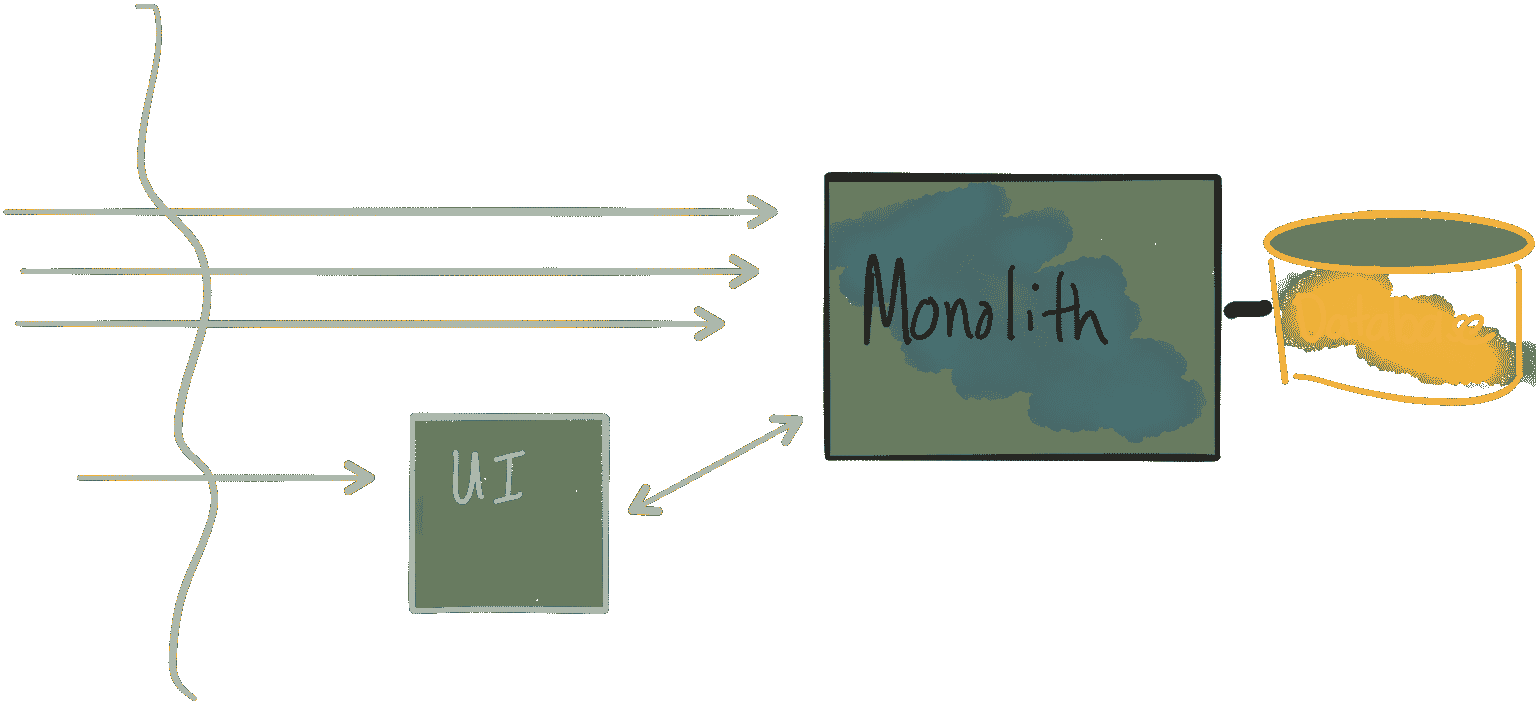 Monolith
UI